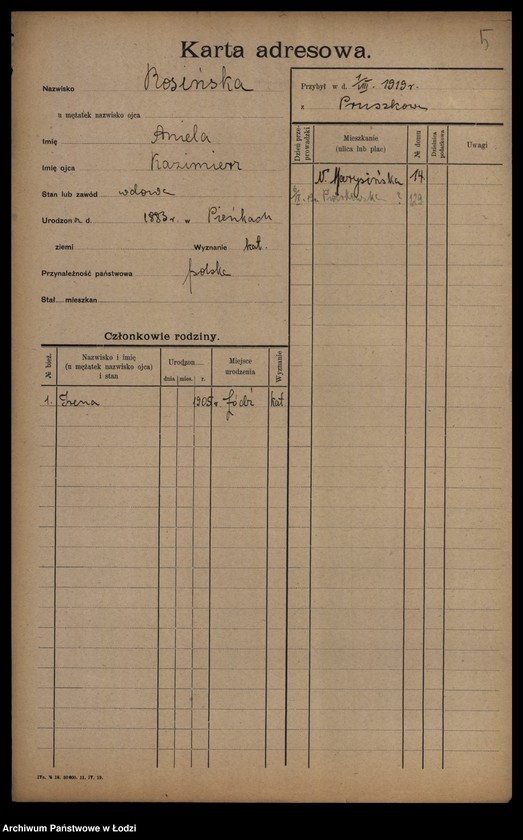 5
Karta adresowa.
Nazwisko Rosińska
u mężatek nazwisko ojca
Imię Aniela
Imię ojca Kazimierz
Stan lub zawód wdowa
Urodzon w d. 1883 r. w Pieńkach
ziemi Wyznanie kat.
Przynależność państwowa polska
Stał. mieszkan
Przybył w d. 1/VIII. 1919 r.
z Pruszkowa
Dzień przeprowadzki
Mieszkanie (ulica lub plac)
№ domu
Dzielnica podatkowa
Uwagi
N. Marysińska 14
Piotrkowska
Członkowie rodziny.
№ bież.
Nazwisko i imię (u mężatek nazwisko ojca) i stan
Urodzon
dnia mies. r.
Miejsce urodzenia
Wyznanie
1. Irena 1905 r. Łódź kat
Archiwum Państwowe w Łodzi